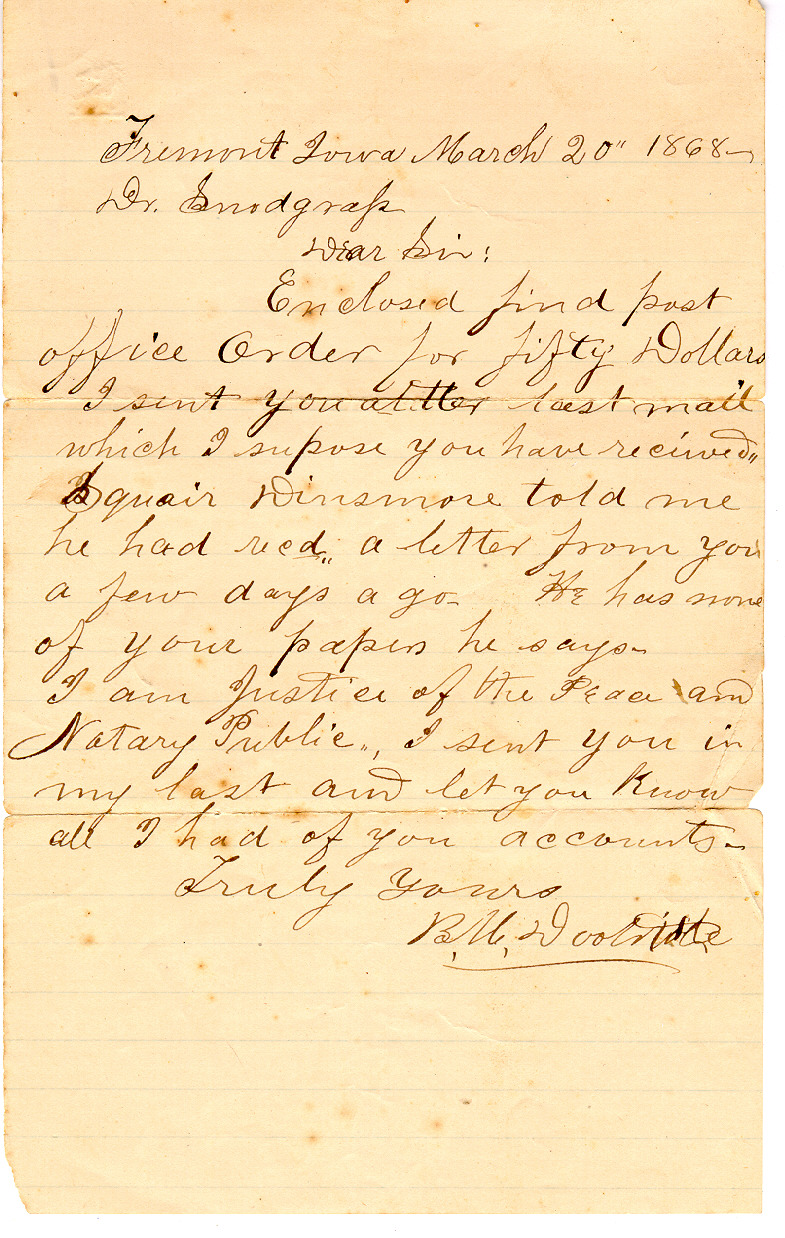 Fremont Iowa March 20" 1868
Dr. Snodgrass
Dear Sir:
Enclosed find post
office Order for fifty Dollars
I sent you a letter last mail
which I supose you have recieved"
Squair Dinsmore told me
he had recd" a letter from you
a few days ago- He has none
of your papers he says-
I am Justice of the Peace and
Notary Public", I sent you in
my last and let you Know
all I had of you accounts-
Truly Yours
B, M,